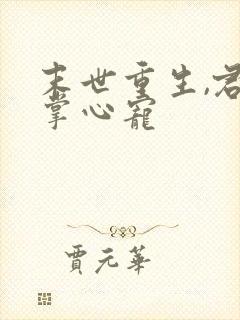 末世重生,君
掌心寵
賈元華